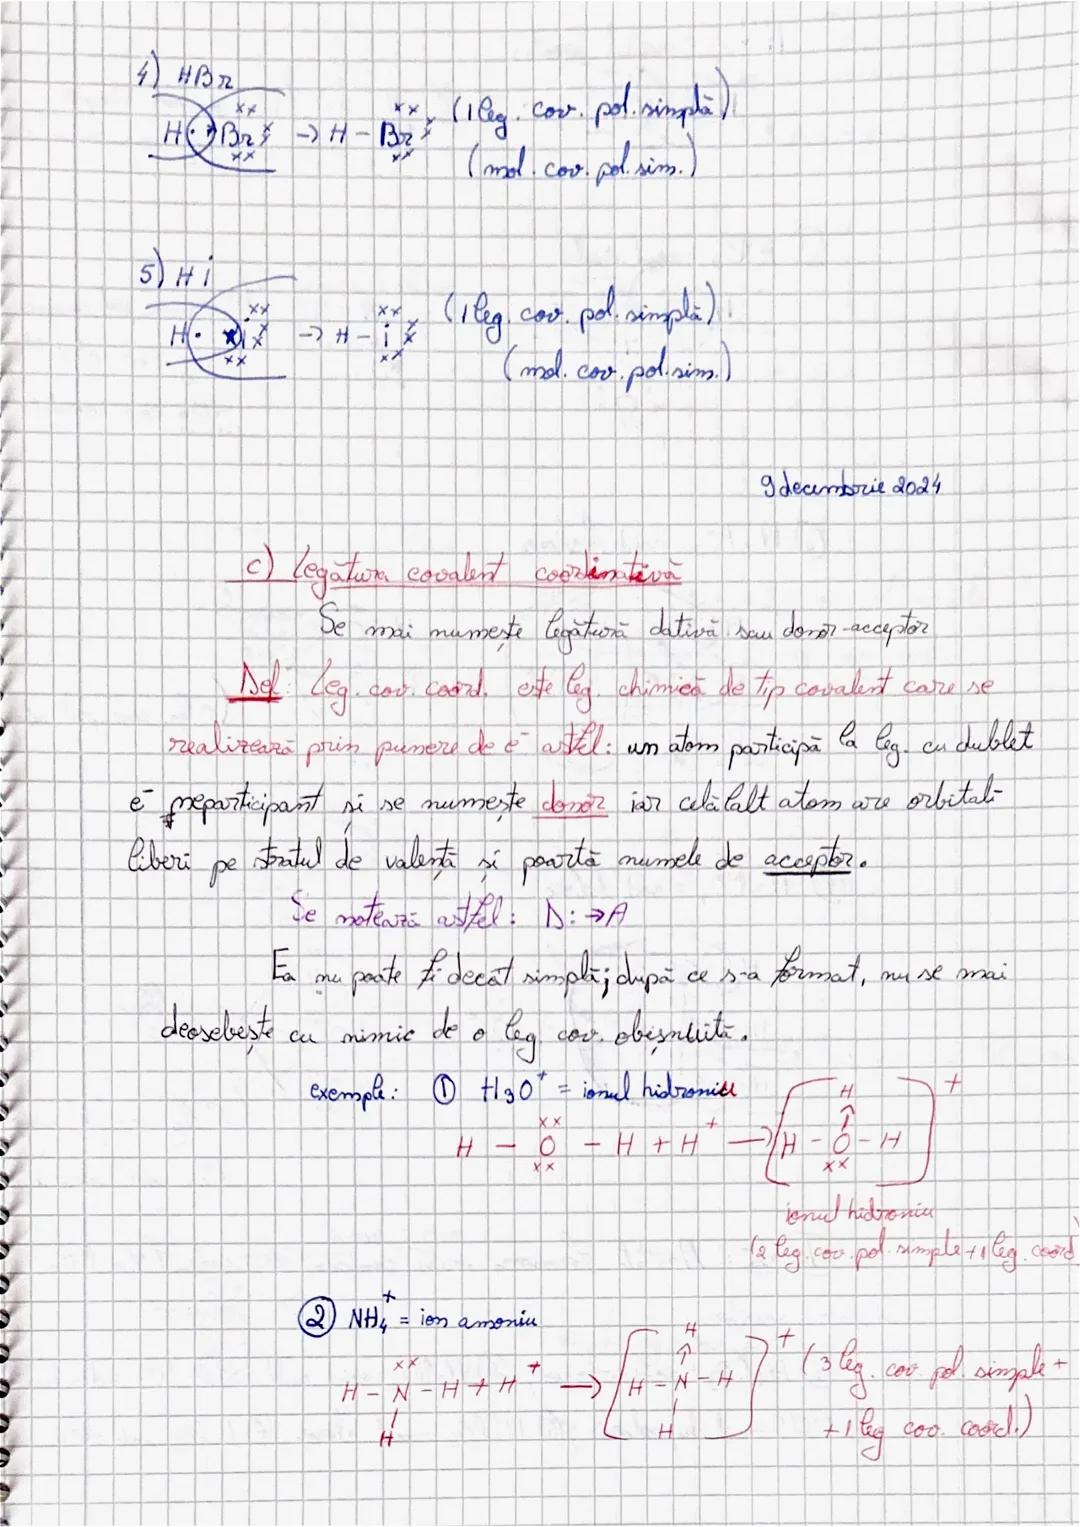 4) HBr
H · × Br → H - Br (1 leg. cov. pol. simplă)
(mol. cov. pol. sim.)
5) Hi
H · × i → H - i (1 leg. cov. pol. simplă)
(mol. cov. pol. sim.)
9 decembrie 2024
c) Legătura covalent coordinativă
Se mai numește legătură dativă sau donor-acceptor
Def: Leg. cov. coord. este leg. chimică de tip covalent care se
realizează prin punere de e⁻ astfel: un atom participă la leg. cu dublet
e⁻ neparticipant și se numește donor iar celălalt atom are orbitali
liberi pe stratul de valență și poartă numele de acceptor.
Se notează astfel: D: → A
Ea nu poate fi decât simplă; după ce s-a format, nu se mai
deosebește cu nimic de o leg cov. obișnuită.
exemple: ① H₃O⁺ = ionul hidroniu
H
H - O - H + H⁺ → [H - O - H]⁺
ionul hidroniu
(2 leg. cov. pol. simple + 1 leg. coord)
② NH₄⁺ = ion amoniu
H
H - N - H + H⁺ → [H - N - H]⁺ (3 leg. cov. pol. simple +
H H + 1 leg cov. coord.)